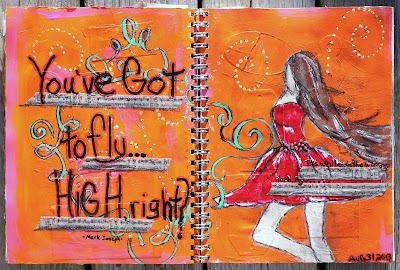 You've Got
to fly...
HiGH right?
-Mark Joseph-
AUG. 31 2013